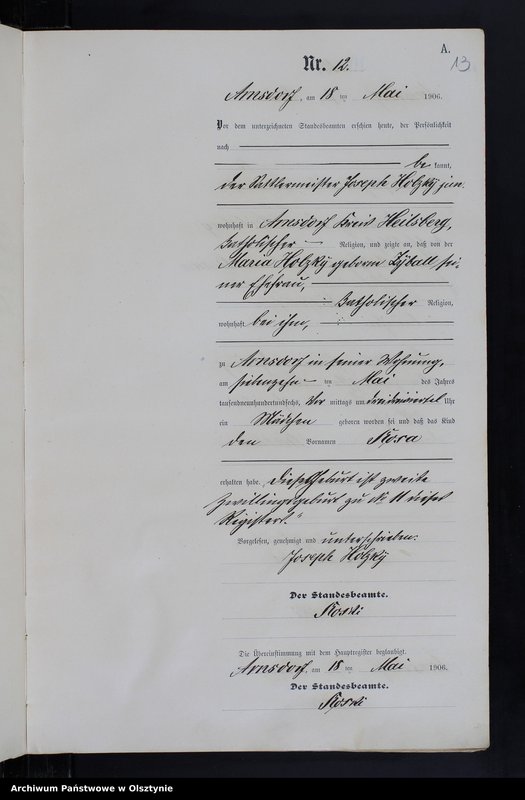 A.
13
Nr. 12.
Arnsdorf, am 18 ten Mai 1906.
Vor dem unterzeichneten Standesbeamten erschien heute, der Persönlichkeit
nach
be kannt,
der Sattlermeister Joseph Hotzky jun.
wohnhaft in Arnsdorf Kreis Heilsberg,
katholischer Religion, und zeigte an, daß von der
Maria Hotzky geborne Lyball, sei-
ner Ehefrau,
katholischer Religion,
wohnhaft bei ihm,
zu Arnsdorf in seiner Wohnung,
am siebenzehn ten Mai des Jahres
tausendneunhundertundsechs, Vor mittags um dreidreiviertel Uhr
ein Mädchen geboren worden sei und daß das Kind
den Vornamen Rosa
erhalten habe. „Diese Geburt ist zweite
Zwillingsgeburt zu Nr. 11 dieses
Registers."
Vorgelesen, genehmigt und unterschrieben:
Joseph Hotzky
Der Standesbeamte.
Die Übereinstimmung mit dem Hauptregister beglaubigt.
Arnsdorf, am 18 ten Mai 1906.
Der Standesbeamte.
Archiwum Państwowe w Olsztynie